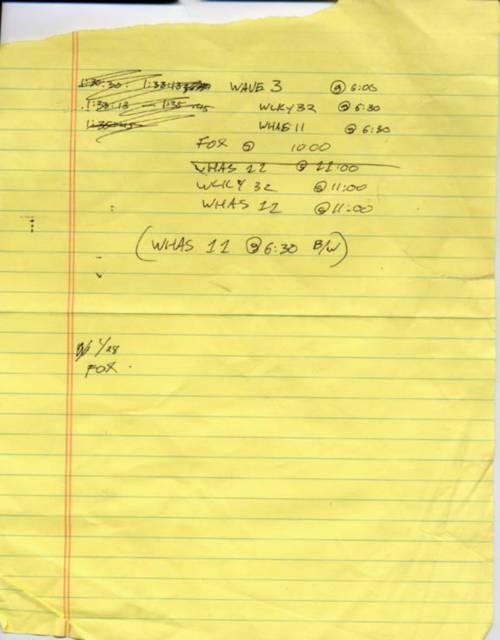 WAVE 3 @ 6:00
WLKY 32 @ 6:30
WHAS 11 @ 6:30
FOX @ 10:00
WHAS 11 @ 11:00
WLKY 32 @ 11:00
WHAS 11 @ 11:00
(WHAS 11 @ 6:30 B/W)
1/28
FOX